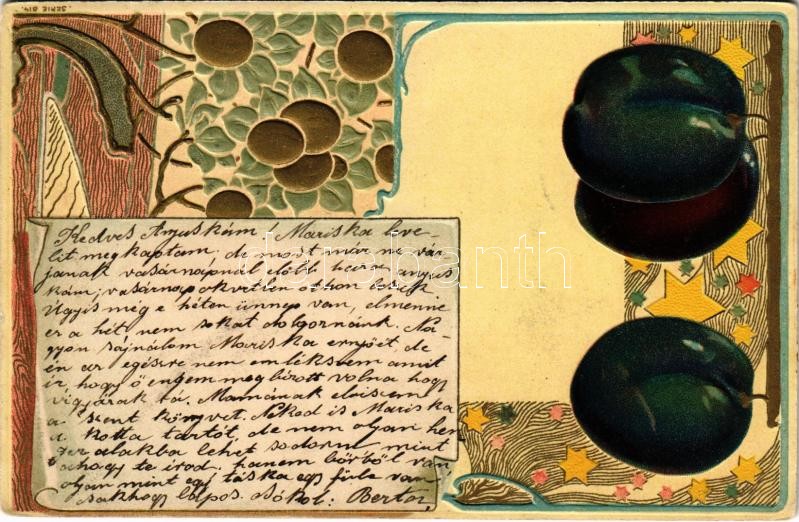 SERIE 814.
Kedves Anyuskám! Mariska leve-
lét megkaptam; de most már ne vár-
janak vasárnapnál előbb haza Anyus
kám; vasárnap okvetlen itthon leszek
Ugyis még e héten ünnep van, elmenne
ez a hét, nem sokat dolgoznánk. Na-
gyon sajnálom Mariska ernyőjét, de
én az egészre nem emlékszem amit
ír, hogy ő engem megbízott volna hogy
végjárak rá. Mamának elviszem
a szent könyvet. Neked is Mariska
a kotta tartót, de nem olyan hen
ger alakba lehet sodorni mint
ahogy te irod, hanem bőrből van
olyan mint egy táska egy füle van
csakhogy lapos. Csókol: Berta,
darabanth